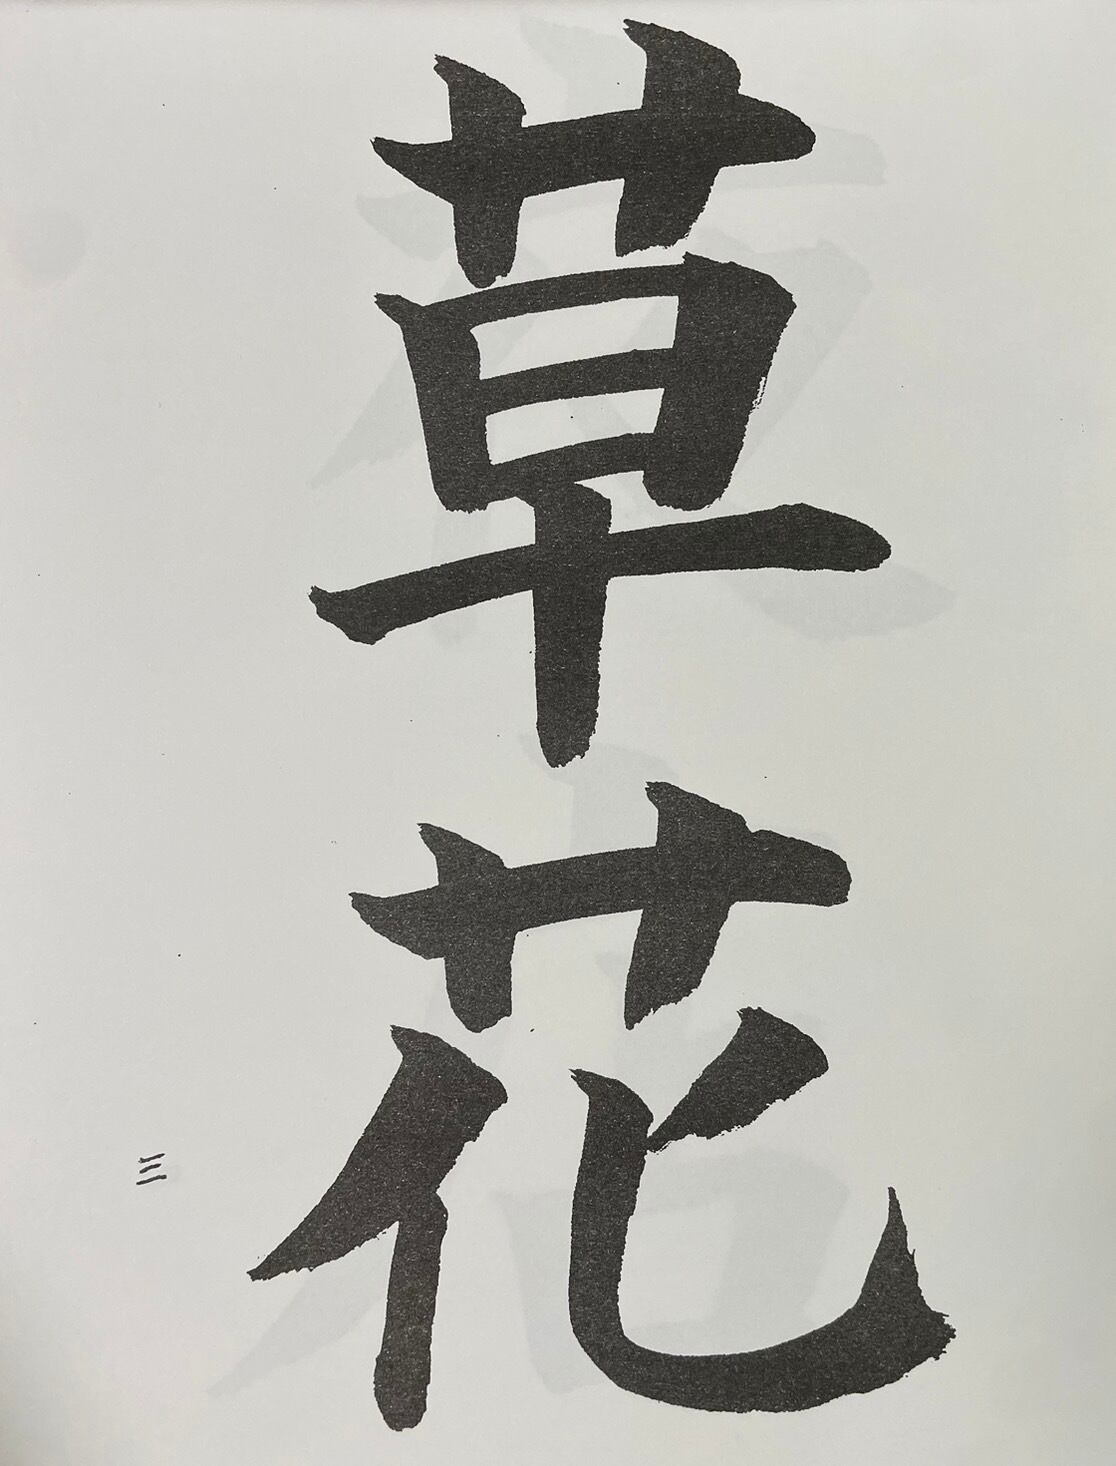 草花
三